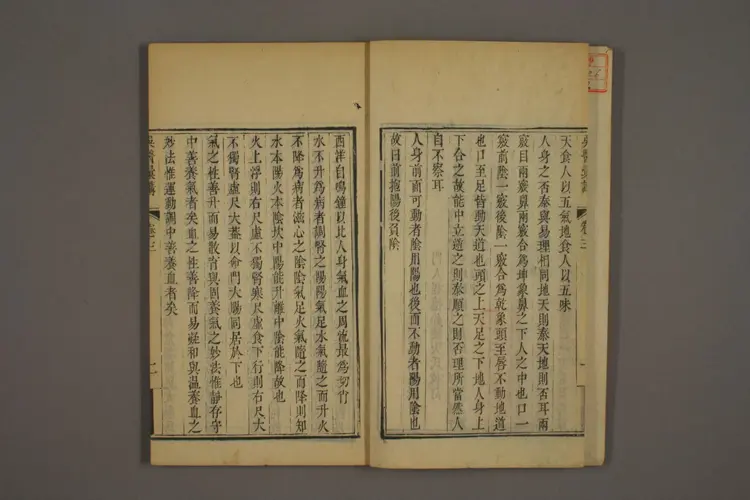 天食人以五氣地食人以五味
人身之否泰與易理相同地天則泰天地則否耳兩
竅目兩竅鼻兩竅合為坤象鼻之下人之中也口一
竅前陰一竅後陰一竅合為乾象頭至唇不動地道
也口至足皆動天道也頭之上天足之下地人身上
下合之故能中立造之則泰順之則否理所當然人
自不察耳
人身前面可動者陰用陽也後而不動者陽用陰也
故曰前抱陽後負陰
卷三
西洋自鳴鐘以比人身氣血之周流最為切竹
水不升為病者調腎之陽陽氣足水氣隨之而升火
不降為病者滋心之陰陰氣足火氣隨之而降則知
水本陽火本陰坎中陽能升離中陰能降故也
火上浮則右尺虛不獨腎寒尺虛食下行則右尺大
不獨腎虛尺大蓋以命門大腸同居於下也
氣之性善升而易散育與固養氣之妙法惟靜存守
中善養氣者矣血之性善降而易凝和與溫養血之
妙法惟運動調中善養血者矣
卷三